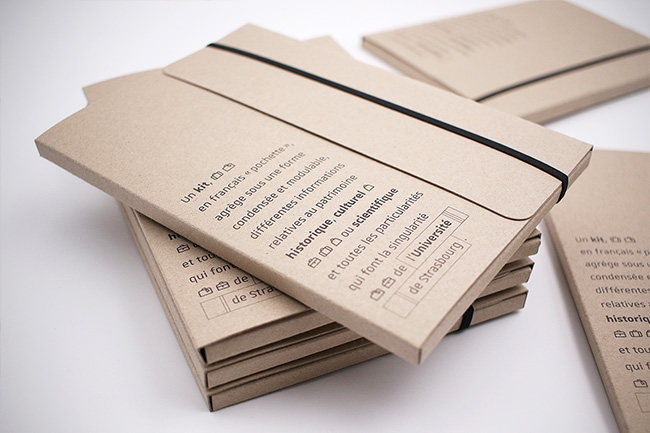 Un kit,
en français « pochette »,
agrège sous une forme
condensée et modulable,
différentes informations
relatives au patrimoine
historique, culturel
ou scientifique
et toutes les particularités
qui font la singularité
de l'Université
de Strasbourg.
historiq
et toute
qui font la
de Strasb
Un kit,
en français « p
agrège sous
condensée e
différentes
relatives a
historiq
et tou
qui fo